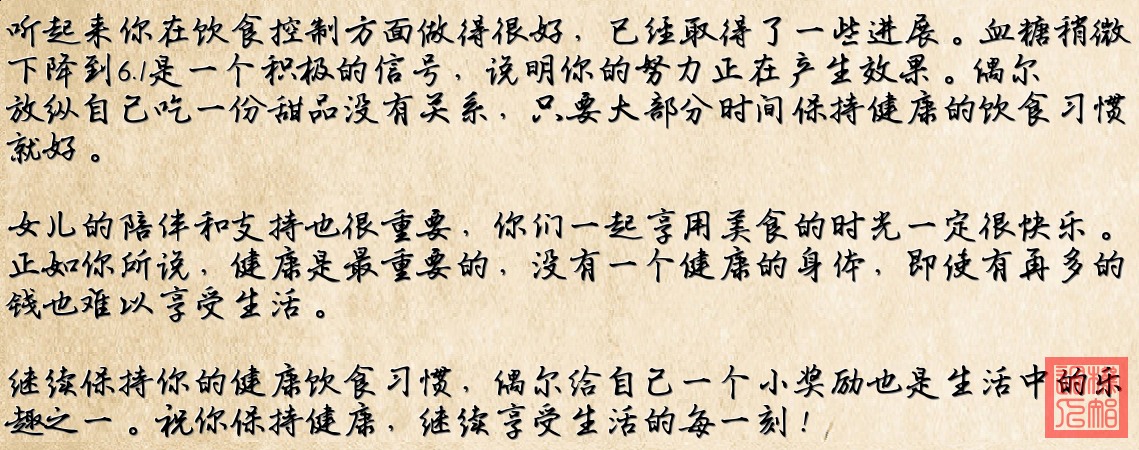 听起来你在饮食控制方面做得很好，已经取得了一些进展。血糖稍微
下降到6.1是一个积极的信号，说明你的努力正在产生效果。偶尔
放纵自己吃一份甜品没有关系，只要大部分时间保持健康的饮食习惯
就好。
女儿的陪伴和支持也很重要，你们一起享用美食的时光一定很快乐。
正如你所说，健康是最重要的，没有一个健康的身体，即使有再多的
钱也难以享受生活。
继续保持你的健康饮食习惯，偶尔给自己一个小奖励也是生活中的乐
趣之一。祝你保持健康，继续享受生活的每一刻！